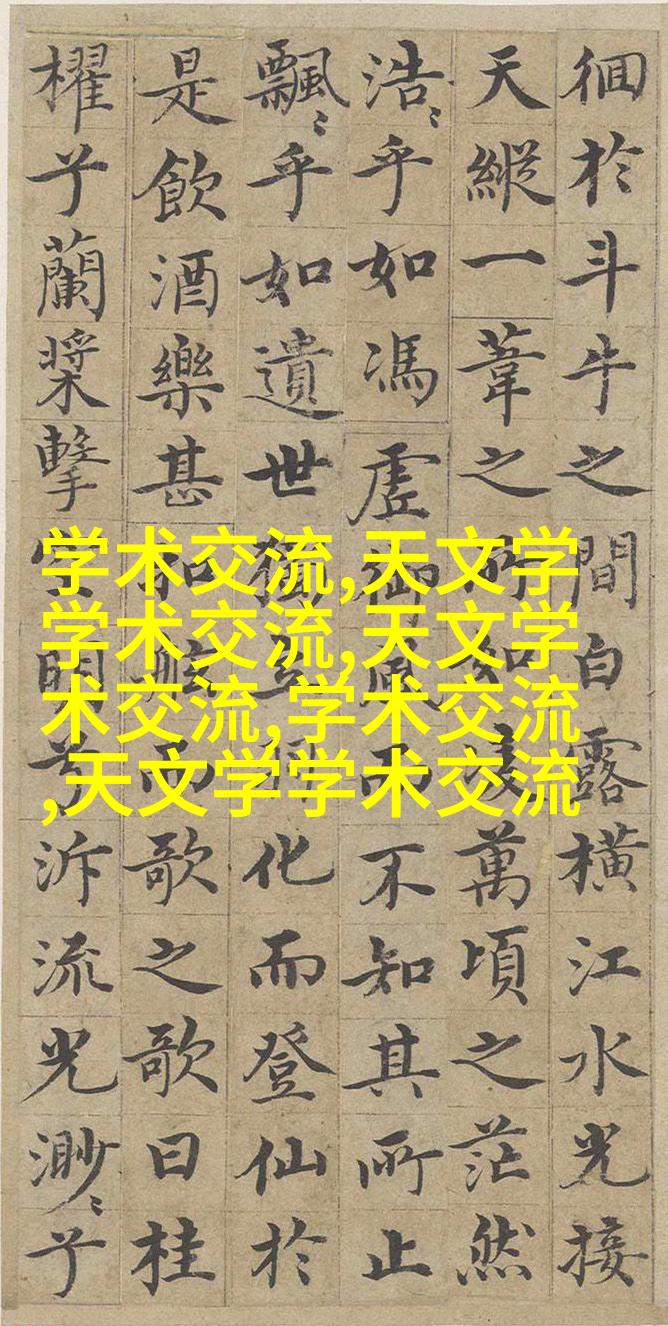 徊於斗牛之間白露橫江水光接
天縱一葦之所如凌萬頃之茫然
浩〻乎如馮虛御風而不知其所止
飄〻乎如遺世獨立羽化而登仙於
是飲酒樂甚扣舷而歌之歌曰桂
櫂兮蘭槳擊空明兮泝流光渺〻兮
学术交流,天文学
学术交流,天文学
术交流,学术交流
,天文学学术交流